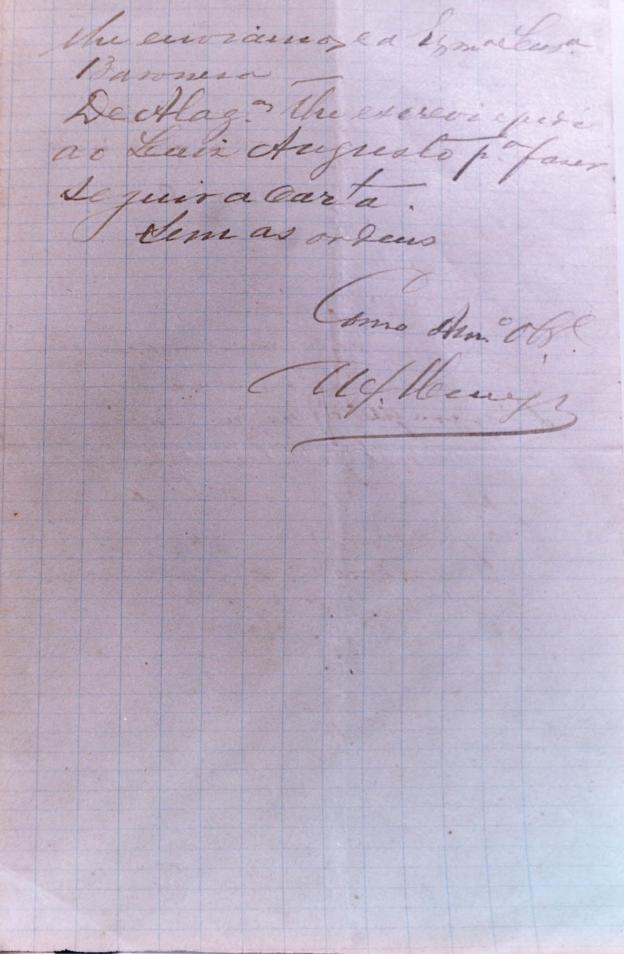 lhe enviamos e a Exma Senra
Baronesa
De Alagas lhe escrevi e pedi
ao Luiz Augusto pa faser
seguir a carta.
Sem as ordens
Como Amo Obro